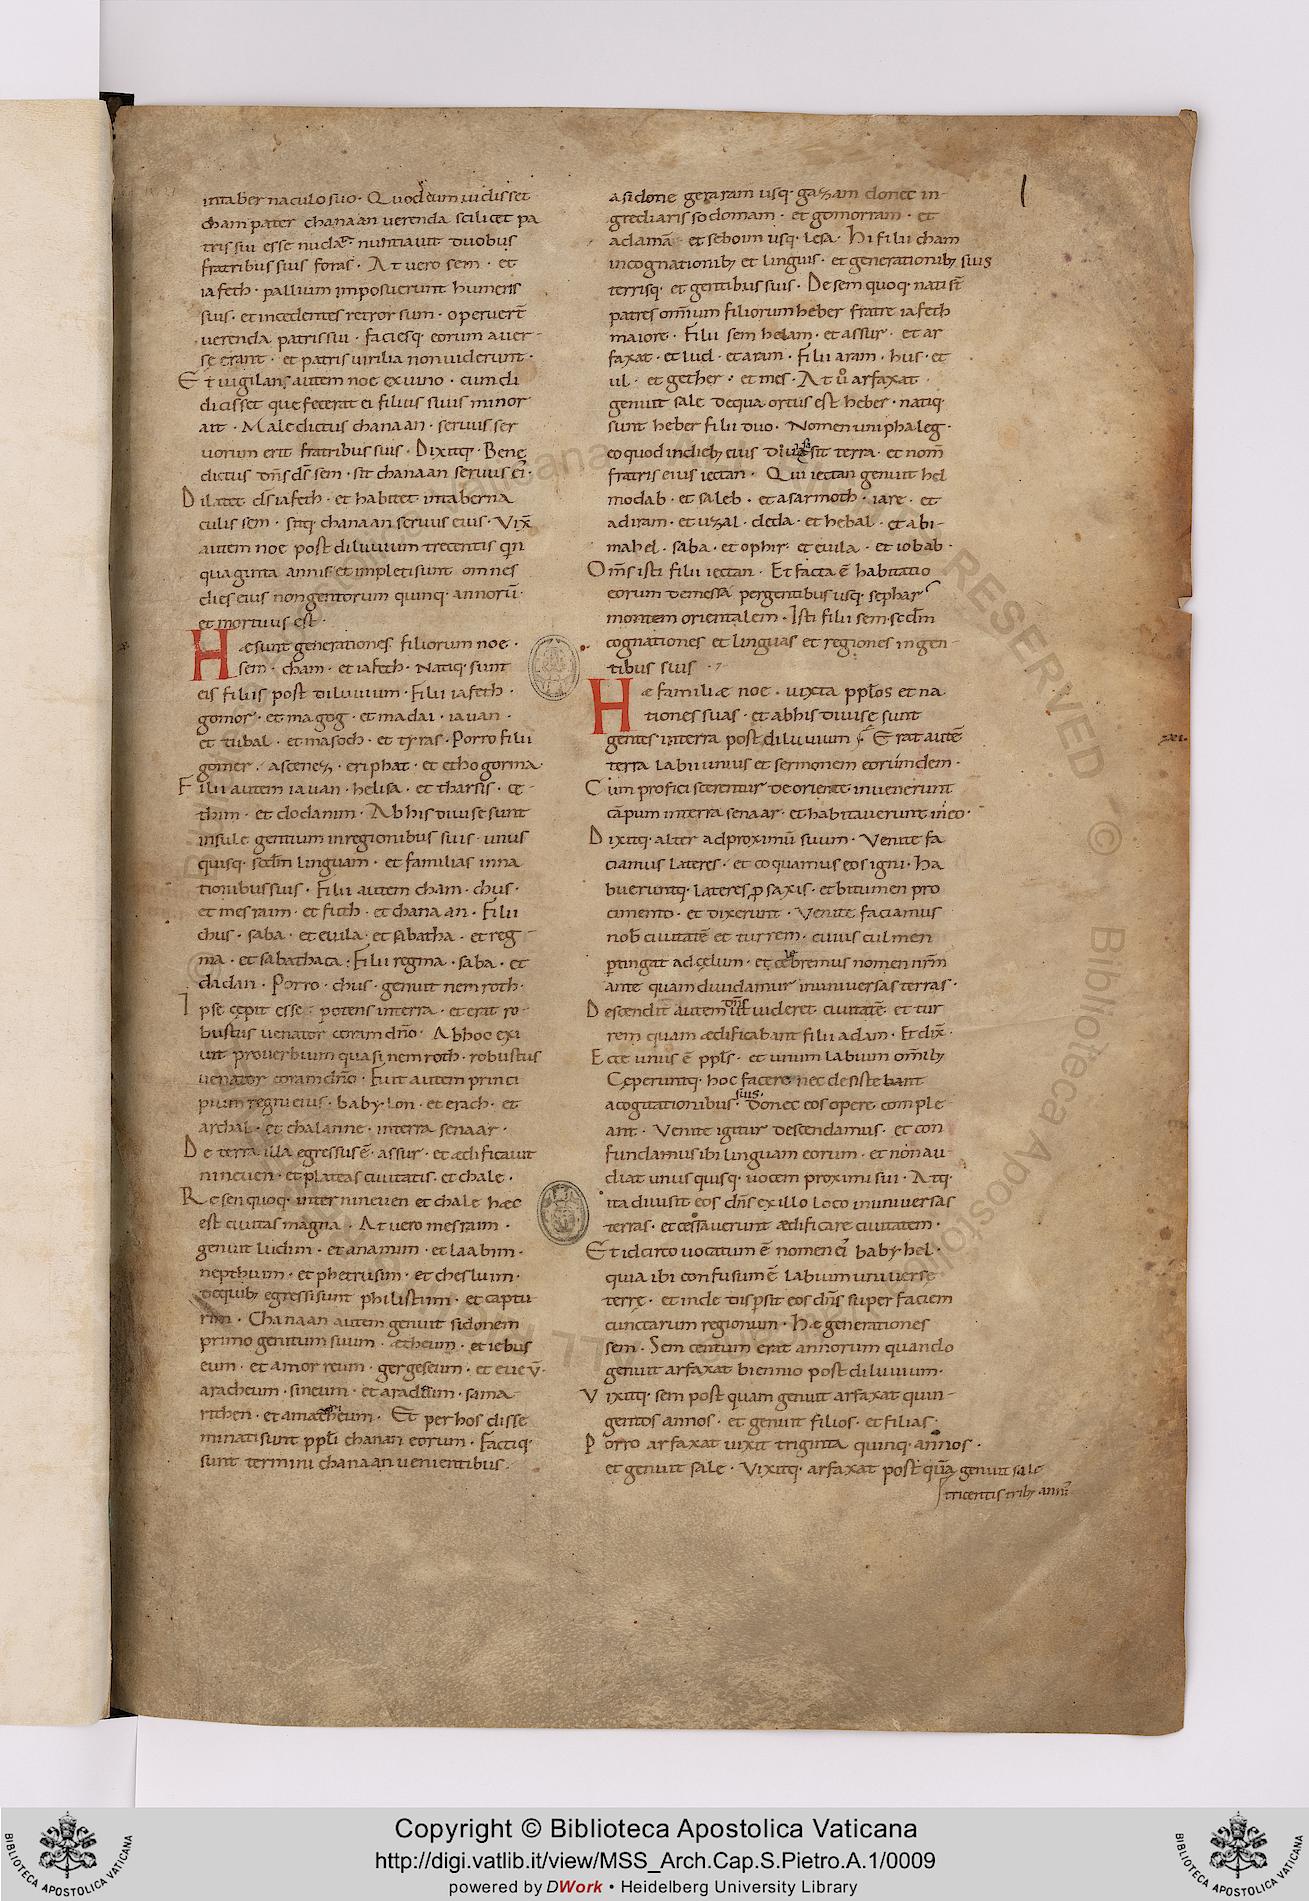 intaber naculo suo · Quod cum uidisset
cham pater chanaan uerenda scilicet pa
tris sui esse nuda · nuntiauit duobus
fratribus suis foras · At uero sem · et
iafeth · pallium imposuerunt humeris
suis · et incedentes retrorsum · operuer̄
uerenda patris sui · faciesq; eorum auer-
sę erant · et patris uirilia non uiderunt ·
Euigilans autem noe ex uino · cum di
dicisset que fecerat ei filius suus minor
ait · Maledictus chanaan · seruus ser
uorum erit fratribus suis · Dixitq; Bene
dictus dn̄s ds̄ sem · sit chanaan seruus ei᷒ ·
Dilatet ds̄ iafeth · et habitet intaberna
culis sem · sitq; chanaan seruus eius · Vix̄
autem noe post diluuium trecentis qin
quaginta annis et impleti sunt omnes
dies eius nongentorum quinq; annorū ·
et mortuus est ·
Hae sunt generationes filiorum noe ·
sem · cham · et iafeth · Natiq; sunt
eis filiis post diluuium · Filii iafeth ·
gomor · et magog · et madai · iauan ·
et tubal · et masoch · et tyras · Porro filii
gomer · ascenez · eriphat · et ethogorma ·
Filii autem iauan · helisa · et tharsis · ce-
thim · et dodanim · Ab his diuise sunt
insule gentium inregionibus suis · unus
quisq; scdm̄ linguam · et familias inna
tionibus suis · Filii autem cham · chus ·
et mesraim · et futh · et chanaan · Filii
chus · saba · et euila · et sabatha · et reg-
ma · et sabathaca · Filii regma · saba · et
dadan · Porro · chus · genuit nemroth ·
Ipse cępit esse potens interra · et erat ro-
bustus uenator coram dn̄o · Abhoc exi
uit prouerbium quasi nemroth · robustus
uenator coram dn̄o · Fuit autem princi
pium regni eius · babylon · et erach · et
archal · et chalanne · interra senaar ·
De terra illa egressus ē · assur · et ædificauit
nineuen · et plateas ciuitatis · et chale ·
Resen quoq; inter nineuen et chale hæc
est ciuitas magna · At uero mesraim ·
genuit ludim · et anamim · et laabim ·
nepthuim · et phetrusim · et chesluim ·
dequib; egressi sunt philistiim · et captu
rim · Chanaan autem genuit sidonem
primogenitum suum · ætheum · et iebus
eum · et amorreum · gergeseum · et eueū ·
aracheum · sineum · et aradium · sama-
rithen · et amatheum · Et per hos disse
minati sunt ppl̄i chanan eorum · Factiq;
sunt termini chanaan uenientibus ·
asidone geraram usq; gazam donec in-
grediaris sodomam · et gomorram · et
adamā · et seboim usq; lesa · Hi filii cham
incognationib; et linguis · et generationib; suis
terrisq; et gentibus suis · De sem quoq; nati st̄
patres omnium filiorum heber fratre iafeth
maiore · Filii sem helam · et assur · et ar
faxat · et lud · et aram · Filii aram · hus · et
ul · et gether · et mes · At uō arfaxat ·
genuit sale dequa ortus est heber · natiq;
sunt heber filii duo · Nomen uni phaleg ·
eo quod in dieb; eius diuisa sit terra · et nom̄
fratris eius iectan · Qui iectan genuit hel
modab · et saleb · et asarmoth · iare · et
adiram · et uzal · deda · et hebal · et abi-
mahel · saba · et ophir · et euila · et iobab ·
Om̄s isti filii iectan · Et facta ē habitatio
eorum demessa pergentibus usq; sephar
montem orientalem · Isti filii sem · scdm̄
cognationes et linguas et regiones ingen-
tibus suis ·
Hæ familiæ noe · uixta ppl̄os et na
tiones suas · et abhis diuise sunt
gentes interra post diluuium · Erat autē
terra labii unius et sermonem eorumdem ·
Cum proficiscerentur de oriente inuenerunt
cāpum interra senaar · et habitauerunt in eo ·
Dixitq; alter adproximū suum · Venite fa
ciamus lateres · et coquamus eos igni · Ha
bueruntq; lateres p̄ saxis · et bitumen pro
cimento · et dixerunt · Venite faciamus
nob̄ ciuitatē et turrem · cuius culmen
ptingat ad cęlum · et celebremus nomen nr̄m
ante quam diuidamur inuniuersas terras ·
Descendit autem dn̄s ut uideret ciuitatē · et tur
rem quam ædificabant filii adam · Et dix̄ ·
Ecce unus ē ppl̄s · et unum labium omīb;
Cęperuntq; hoc facere nec desistebant
acogitationibus suis · donec eos opere comple
ant · Venite igitur descendamus · et con
fundamus ibi linguam eorum · et non au-
diat unusquisq; uocem proximi sui · Atq;
ita diuisit eos dn̄s ex illo loco inuniuersas
terras · et cessauerunt ædificare ciuitatem ·
Et idcirco uocatum ē nomen ei᷒ babyhel ·
quia ibi confusum ē labium uniuerse
terrę · et inde dispsit eos dn̄s super faciem
cunctarum regionum · Hæ generationes
sem · Sem centum erat annorum quando
genuit arfaxat biennio post diluuium ·
Vixitq; sem post quam genuit arfaxat quin-
gentos annos · et genuit filios · et filias ·
Porro arfaxat uixit triginta quinq; annos ·
et genuit sale · Vixitq; arfaxat post quā genuit sale
tricentis trib; annis
Copyright © Biblioteca Apostolica Vaticana
http://digi.vatlib.it/view/MSS_Arch.Cap.S.Pietro.A.1/0009
powered by DWork • Heidelberg University Library
BIBLIOTECA APOSTOLICA VATICANA
BIBLIOTECA APOSTOLICA VATICANA